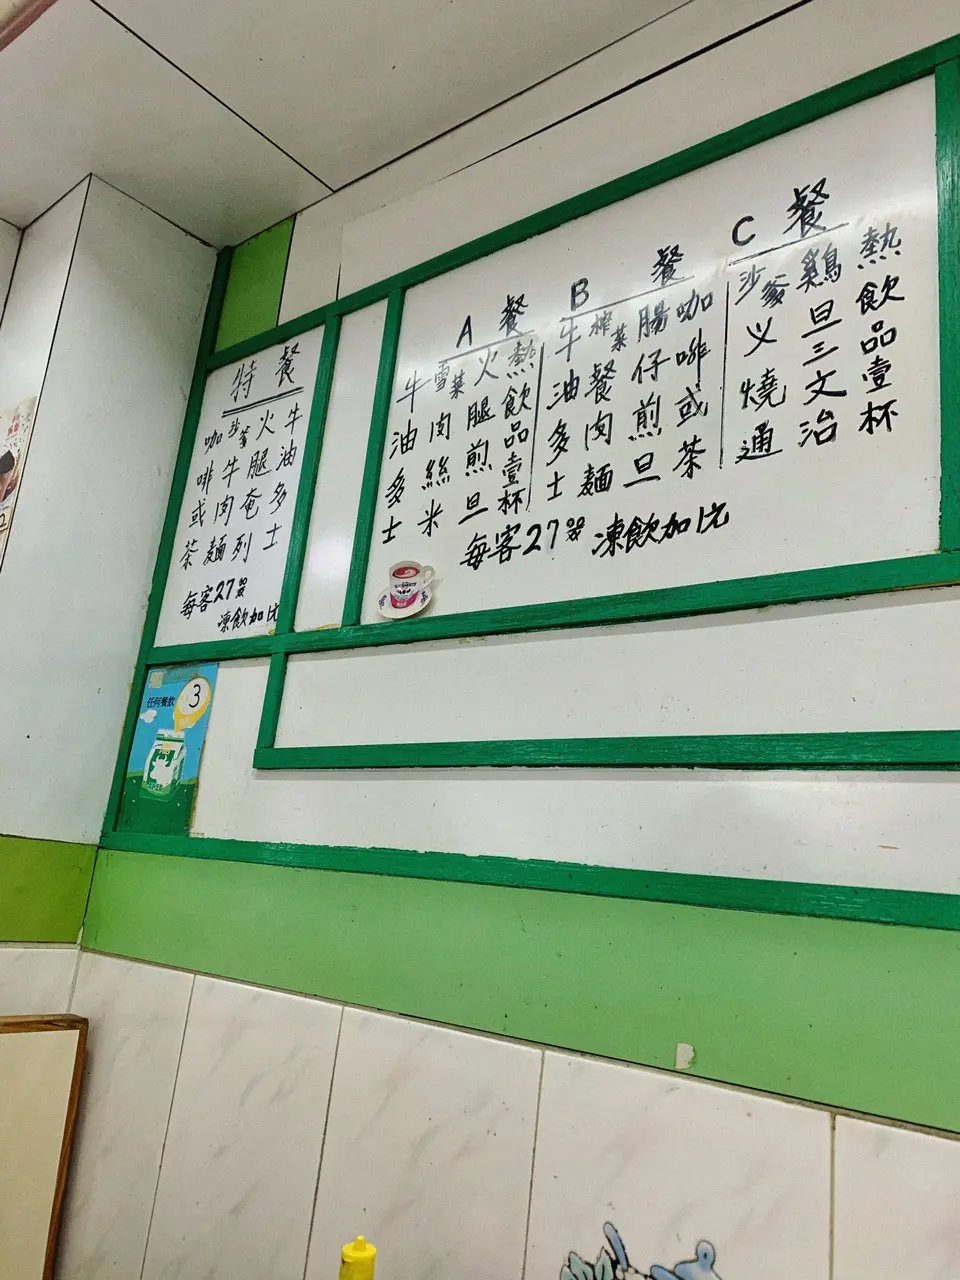 特餐
牛油多士
火腿奄列
沙爹牛肉麵
咖啡或茶
每客27.00
凍飲加1元
A 餐
熱飲品壹杯
火腿煎旦
雪菜肉絲米
牛油多士
B 餐
咖啡或茶
腸仔煎旦
榨菜餐肉麵
牛油多士
C 餐
熱飲品壹杯
鷄旦三文治
沙爹义燒通
每客27.00 凍飲加1元
任何餐飲
3